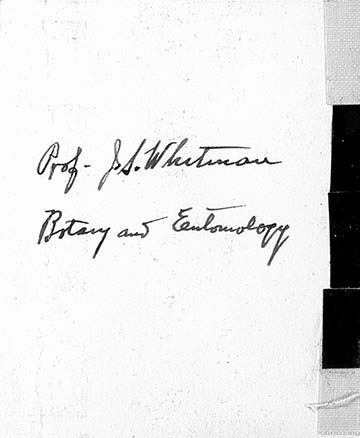 Prof. J. S. Whitman
Botany and Entomology